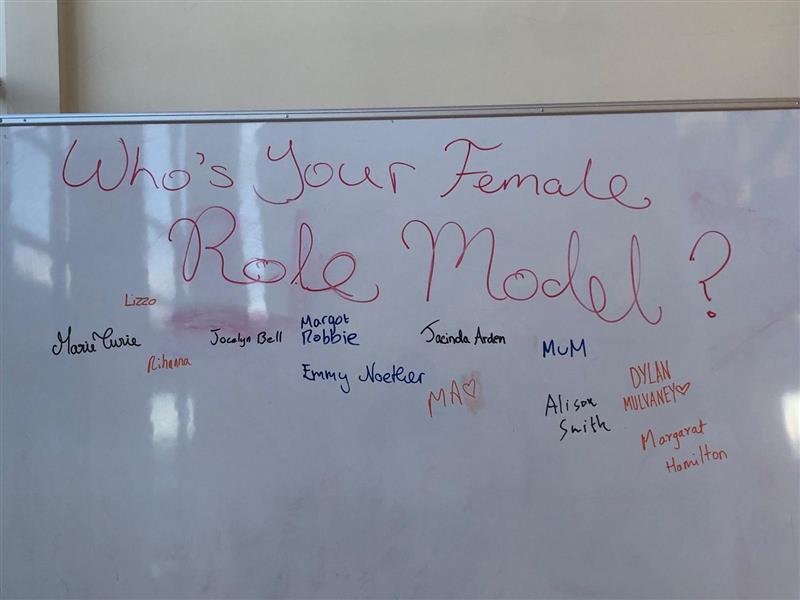 Who's Your Female
Role Model?
Lizzo
Marie Curie
Rihanna
Jocelyn Bell
Margot
Robbie
Emmy Noether
Jacinda Arden
MA♡
MUM
Alison
Smith
DYLAN
MULVANEY♡
Margarat
Hamilton